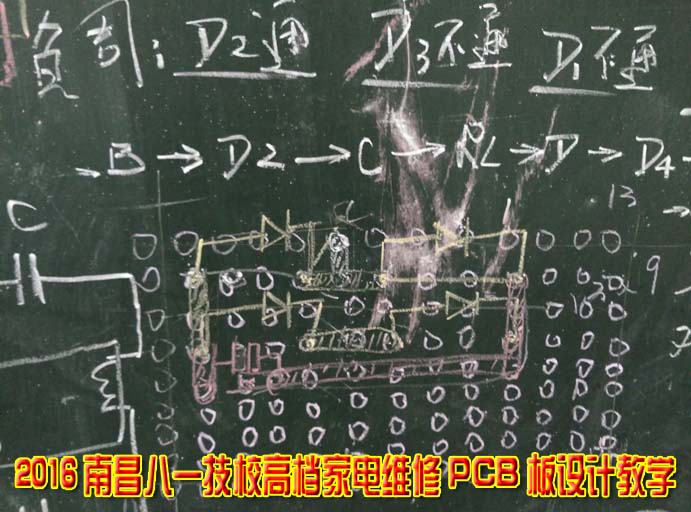 负司：D2通 D3不通 D1不通
→ B → D2 → C → RL → D → D4 →
13
C
9
2016南昌八一技校高档家电维修PCB 板设计教学